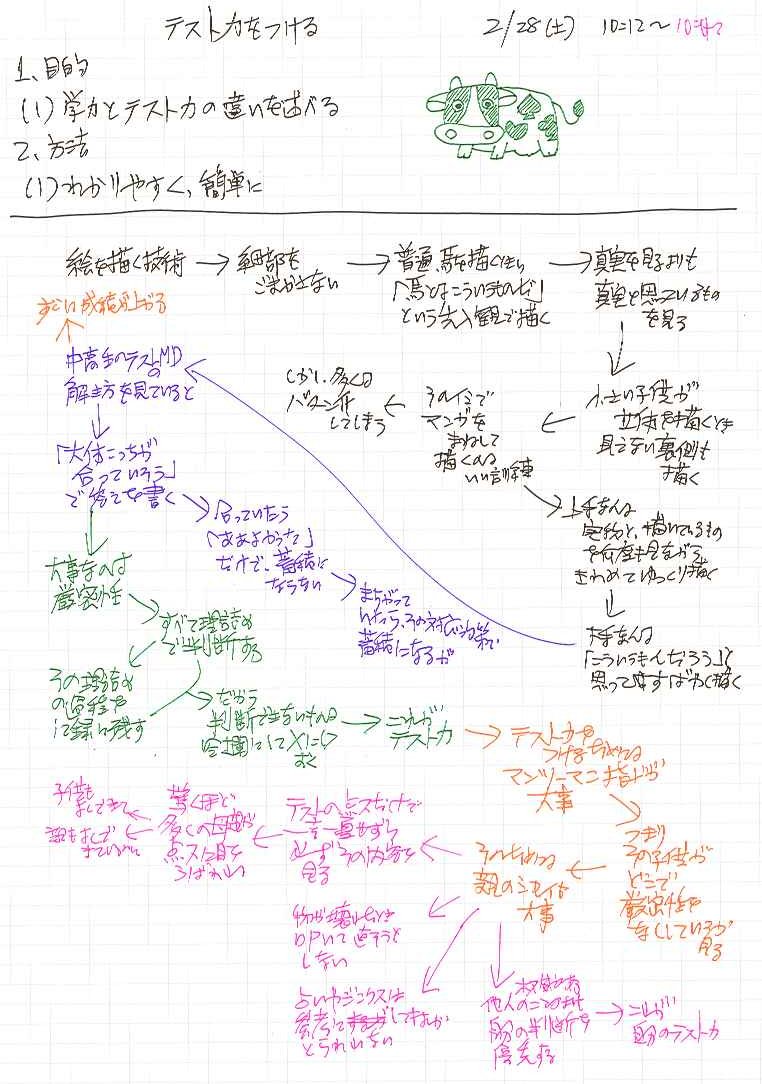 テスト力をつける
2/28(土) 10:12〜
1、目的
(1)学力とテスト力の違いを述べる
2、方法
(1)わかりやすく、簡単に
絵を描く技術
細部を
ごまかさない
普通馬を描くなら
「馬とはこういうものだ」
という先入観で描く
真実を見るよりも
真実と思っているもの
を見る
小さい子供が
立体を描くとき
見えない裏側も
描く
その点で
マンガを
まねして
描くのは
いい訓練
しかし、多くは
パターン化
してしまう
上手な人は
実物と、描いているもの
を何度も見ながら
きわめてゆっくり描く
下手な人は
「こういうもんだろう」と
思ってすばやく描く
中高生のテスト
の
解き方を見ていると
すごい成績が上がる
「大体こっちが
合っているだろう」
で答えを書く
合っていたら
「ああよかった」
だけで、蓄積に
ならない
まちがって
いたら、その対応次第で
蓄積になるが
大事なのは
厳密性
すべて理詰め
で判断する
その理詰め
の過程を
記録に残す
だから
判断できないものは
空欄にして×にして
おく
これが
テスト力
テスト力を
つけるためには
マンツーマン指導が
大事
つまり
その子供が
どこで
厳密性を
なくしているか
見る
そのためには
親のしせいは
大事
テストの点数だけで
一喜一憂せずに
必ずその内容を
見る
驚くほど
多くの母親が
点数に目を
うばわれ
子供も
物が壊れたとき
叩いて直そうと
しない
占いやジンクスは
参考にするが
とらわれない
権威ある
他人の
自分の判断を
優先する
これが
自分のテスト力